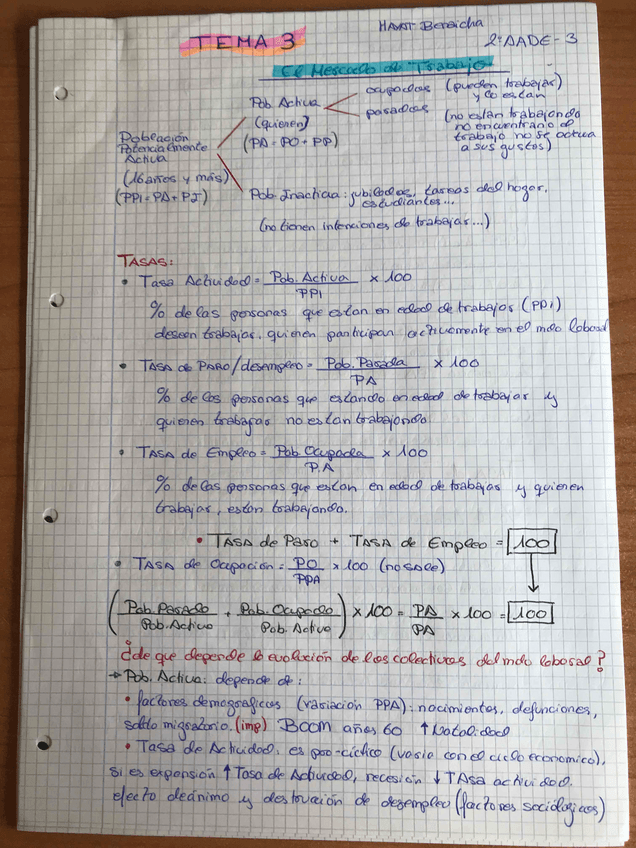 Hayat Bereicha
TEMA 3 2º AADE - 3
El Mercado de Trabajo
Población Potencialmente Activa (16 años y más) (PPI = PA + PI)
Pob. Activa (quieren) (PA = PO + PP)
ocupadas (pueden trabajar) y lo están
paradas (no están trabajando no encuentran o el trabajo no se adecua a sus gustos)
Pob. Inactiva: jubilados, tareas del hogar, estudiantes...
(no tienen intenciones de trabajar...)
TASAS:
• Tasa Actividad = Pob. Activa / PPI x 100
% de las personas que estan en edad de trabajar (PPI)
desean trabajar, quieren participan activamente en el mdo laboral
• TASA de PARO/desempleo = Pob. Parada / PA x 100
% de las personas que estando en edad de trabajar y
quieren trabajar no estan trabajando
• TASA de Empleo = Pob Ocupada / P.A x 100
% de las personas que estan en edad de trabajar y quieren
trabajar, estan trabajando.
• TASA de Paro + TASA de Empleo = 100
• TASA de Ocupación = PO / PPA x 100 (no sale)
(Pob. Parada / Pob. Activa + Pob. Ocupada / Pob. Activa) x 100 = PA / PA x 100 = 100
¿de que depende la evolución de los colectivos del mdo laboral?
→ Pob. Activa: depende de:
• factores demográficos (variación PPA): nacimientos, defunciones,
saldo migratorio. (imp) BOOM años 60 ↑ Natalidad
• Tasa de Actividad, es pro-cíclico (varia con el ciclo economico),
si es expansión ↑ Tasa de Actividad, recesión ↓ TAsa actividad.
efecto deánimo y destrucción de desempleo (factores sociologicos)